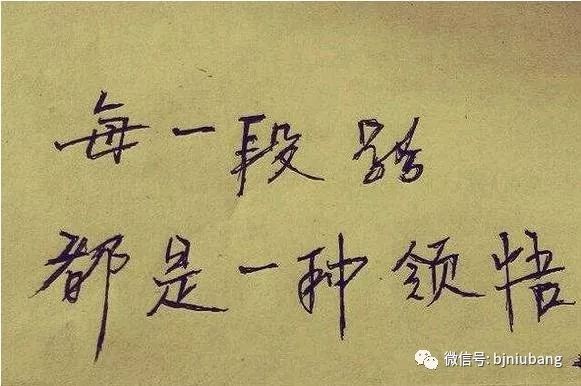 每一段路
都是一种领悟
微信号: bjniubang